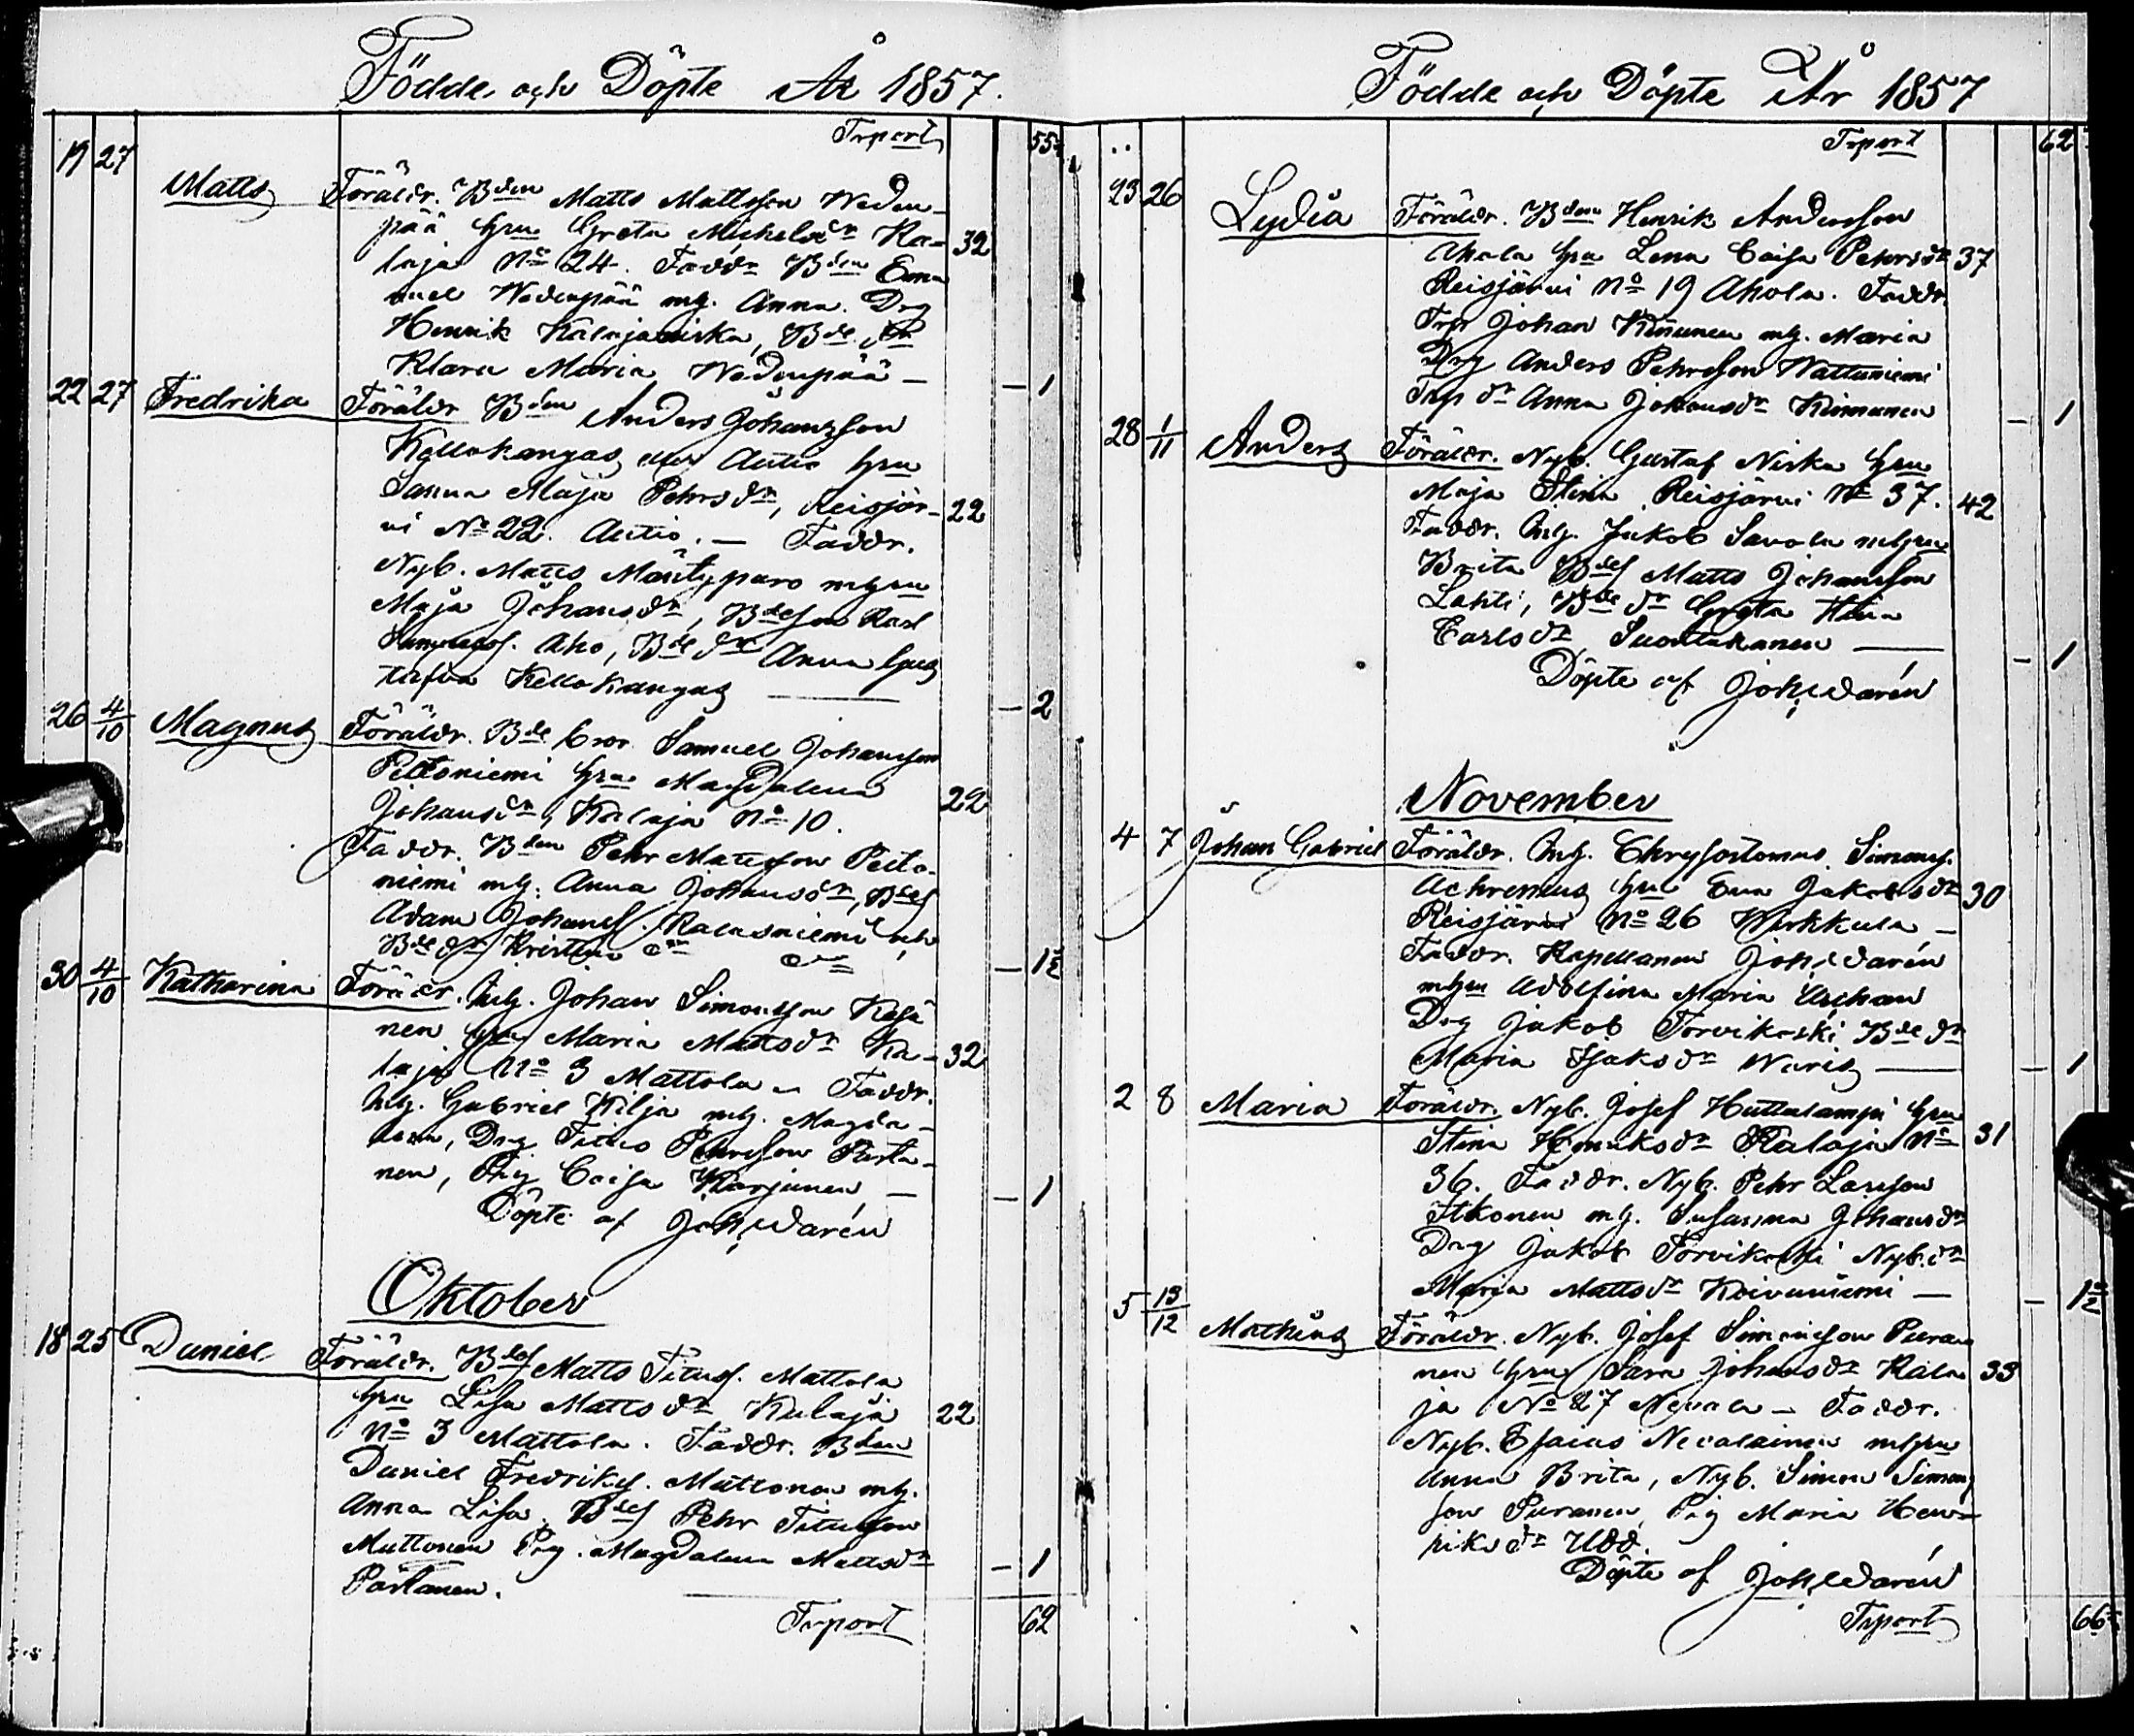 Födde och Döpte År 1857.
Trport 55
19 27
Matts Föräldr. Bden Matts Mattsson Weden-
pää hru Greta Michelsdr Ka- 32
laja No 24. Faddr Bden Eman
uel Wedenpää mh. Anna. Drg
Henrik Kalajaniska, Bde dr
Klara Maria Wedenpää — — 1
22 27 Fredrika Föräldr Bden Anders Johansson
Kellokangas Autio hru
Sanna Maja Pehrsdr, Reisjär- 22
vi No 22. Autio. — Faddr.
Nyb. Matts Mäntypuro mhru
Maja Johansdr, Bdeson Karl
Aho, Bde dr Anna Gus
tafva Kellokangas — 2
26 4/10 Magnus Föräldr. Bde bror Samuel Johansson
Peltoniemi hru Magdalena
Johansdr, Kalaja No 10. 22
Faddr. Bden Pehr Mattsson Pelto-
niemi mh. Anna Johansdr, Bdes
Adam Johanss. Kalasniemi och
Bde dr Kristina — 1
30 4/10 Katharina Föräldr. Inh. Johan Simonsson Kesä
nen hru Maria Mattsdr Ka- 32
laja No 3 Mattola — Faddr.
Inh. Gabriel Kilja mh. Magda-
lena, Drg Titus Pehrsson Parta-
nen, Pig Caisa Karjunen — — 1
Döpte af Joh. Warén
Oktober
18 25 Daniel Föräldr. Bdes Matts Tituss. Mattola
hru Lisa Mattsdr Kalaja 22
No 3 Mattola. Faddr. Bden
Daniel Fredrikss. Muttonen mh.
Anna Lisa. Bdes Pehr Titusson
Muttonen Pig. Magdalena Mattsdr — 1
Partanen.
Trport 62
Födde och Döpte År 1857
Trport 62
23 26
Lydia Föräldr. Bden Henrik Andersson
Ahola hru Lena Caisa Pehrsdr 37
Reisjärvi No 19 Ahola. Faddr.
Trp Johan Kinnunen mh. Maria
Drg Anders Pehrsson Wattuniemi
Trp dr Anna Johansdr Kinnunen — 1
28 1/11 Anders Föräldr. Nyb. Gustaf Niska hru
Maja Stina Reisjärvi No 37. 42
Faddr. Inh. Jakob Savola mhru
Brita Bdes Matts Johansson
Lahti, Bde dr Greta Stina
Carlsdr Suontakanen — — 1
Döpte af Joh. Warén
November
4 7 Johan Gabriel Föräldr. Inh. Chrysostomus Simonss.
Achrenius hru Eva Jakobsdr 30
Reisjärvi No 26 Kirkkula —
Faddr. Kapellanen Joh. Warén
mhru Adolfina Maria Aschan
Drg Jakob Torvikoski Bde dr
Maria Isaksdr Waris — — 1
2 8 Maria Föräldr. Nyb. Josef Huttulampi hru
Stina Henriksdr Kalaja No 31
36. Faddr. Nyb. Pehr Larsson
Itkonen mh. Susanna Johansdr
Drg Jakob Torvikoski Nyb. dr
Maria Mattsdr Koivuniemi — — 1
5 13/12 Mathias Föräldr. Nyb. Josef Simonsson Pura
nen hru Sara Johansdr Kala 33
ja No 27 Nevala — Faddr.
Nyb. Esaias Nevalainen mhru
Anna Brita, Nyb. Simon Simons
son Puranen, Pig Maria Hen-
riksdr Udd.
Döpte af Joh. Warén
Trport 66